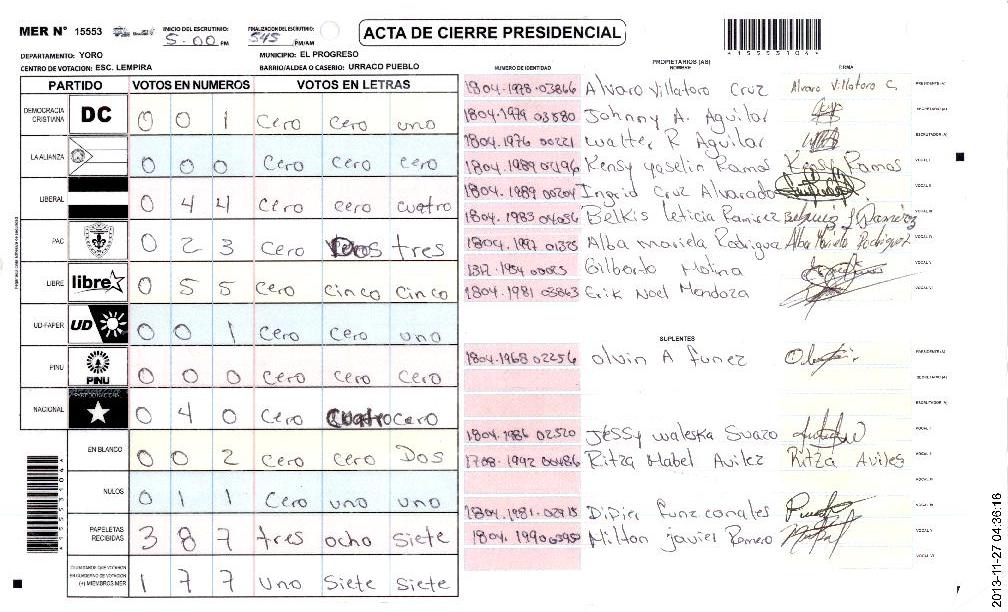 MER N° 15553
INICIO DEL ESCRUTINIO: 5-00 PM
FINALIZACION DEL ESCRUTINIO: 545 PM/AM
ACTA DE CIERRE PRESIDENCIAL
DEPARTAMENTO: YORO
MUNICIPIO: EL PROGRESO
CENTRO DE VOTACION: ESC. LEMPIRA
BARRIO/ALDEA O CASERIO: URRACO PUEBLO
PARTIDO VOTOS EN NUMEROS VOTOS EN LETRAS
DEMOCRACIA CRISTIANA DC 0 0 1 Cero cero uno
LA ALIANZA 0 0 0 Cero cero cero
LIBERAL 0 4 4 Cero cero cuatro
PAC 0 2 3 Cero Dos tres
LIBRE libre 0 5 5 Cero Cinco Cinco
UD-FAPER UD 0 0 1 Cero Cero uno
PINU PINU 0 0 0 Cero Cero Cero
NACIONAL 0 4 0 Cero Cuatro cero
EN BLANCO 0 0 2 Cero cero Dos
NULOS 0 1 1 Cero uno uno
PAPELETAS RECIBIDAS 3 8 7 tres ocho siete
CIUDADANOS QUE VOTARON EN CUADERNO DE VOTACION (+) MIEMBROS MER 1 7 7 uno siete siete
PROPIETARIOS (AS)
NUMERO DE IDENTIDAD NOMBRE FIRMA
1804-1978-03866 Alvaro Villatoro Cruz Alvaro Villatoro C. PRESIDENTE(A)
1804-1979 03580 Johnny A. Aguilar SECRETARIO(A)
1804-1976 00221 Walter R Aguilar ESCRUTADOR(A)
1804-1989 Kensy yaselin Ramos Kensy Ramos VOCAL I
1804-1989 00204 Ingrid Cruz Alvarado VOCAL II
1804-1983 04056 Belkis leticia Ramirez VOCAL III
1804-1997 01325 Alba mariela Rodriguez VOCAL IV
Gilberto Molina VOCAL V
1804-1981 03863 Erik Noel Mendoza VOCAL VI
SUPLENTES
1804-1968 02256 olvin A funez PRESIDENTE(A)
SECRETARIO (A)
ESCRUTADOR (A)
1804-1986 02520 Jessy waleska Suazo VOCAL I
1708-1992 00486 Ritza Mabel Avilez Ritza Aviles VOCAL II
VOCAL III
1804-1981- VOCAL IV
1804. 1990 Milton javier Romero VOCAL V
VOCAL VI
2013-11-27 04:36:16